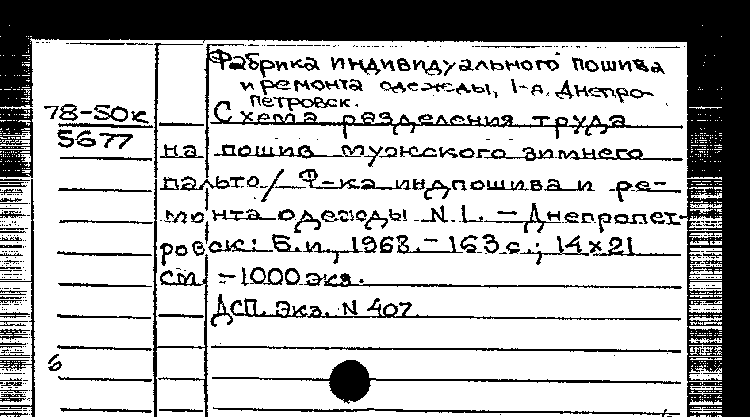 Фабрика индивидуального пошива
и ремонта одежды, 1-я. Днепро-
петровск.
78-50к
5677
Схема разделения труда
на пошив мужского зимнего
пальто/ Ф-ка индпошива и ре-
монта одежды N 1. - Днепропет-
ровск: Б.и., 1968. - 163 с.; 14x21
см. - 1000 экз.
ДСП. Экз. N 407
6